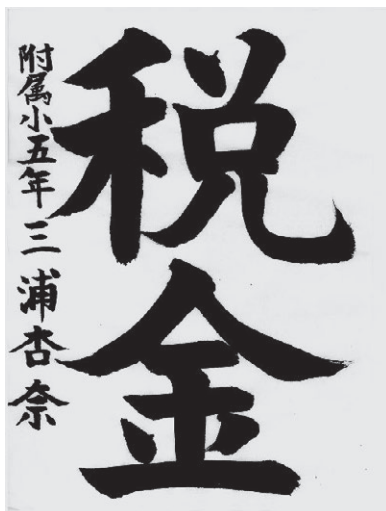 税金
附属小五年三浦杏奈